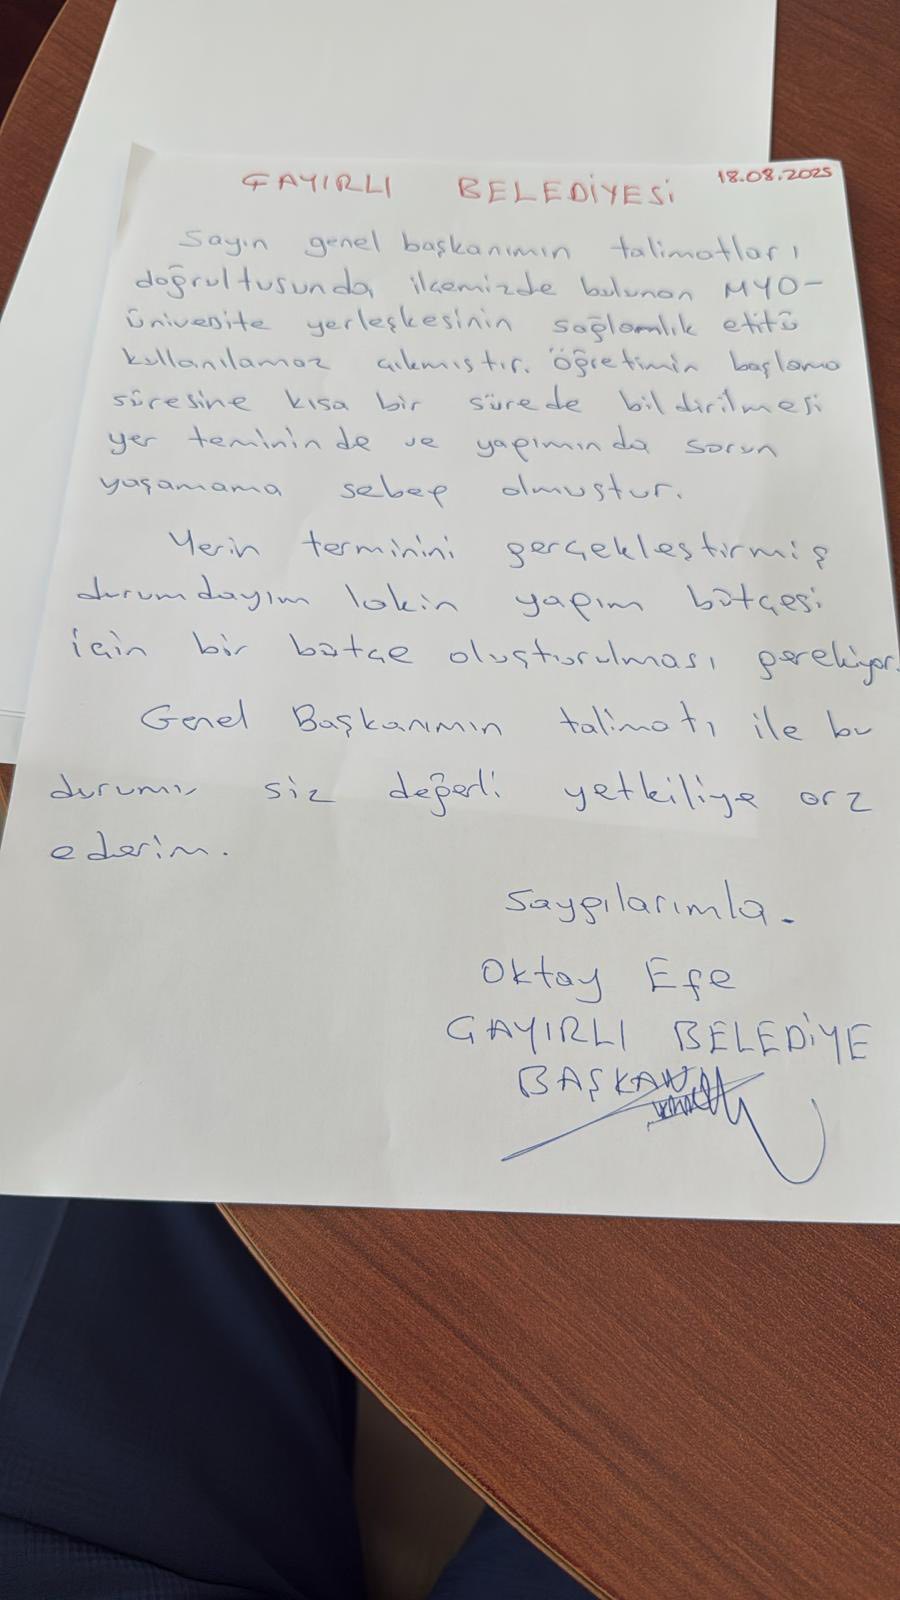 ÇAYIRLI BELEDİYESİ 18.08.2025
Sayın genel başkanımın talimatları
doğrultusunda ilçemizde bulunan MYO-
ünivesite yerleşkesinin sağlamlık etütü
kullanılamaz çıkmıştır. Öğretimin başlama
süresine kısa bir sürede bildirilmesi
yer temininde ve yapımında sorun
yaşamama sebep olmuştur.
Yerin terminini gerçekleştirmiş
durumdayım lakin yapım bütçesi
için bir bütçe oluşturulması gerekiyor.
Genel Başkanımın talimatı ile bu
durumu siz değerli yetkiliye arz
ederim.
Saygılarımla.
Oktay Efe
ÇAYIRLI BELEDİYE
BAŞKANI